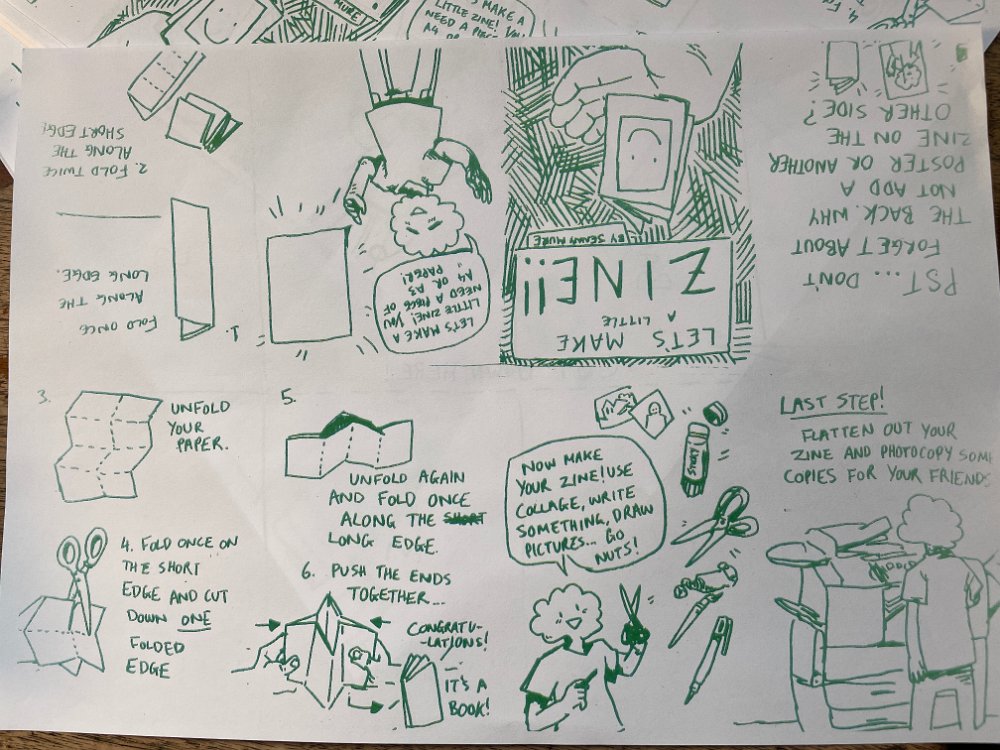 MAKE A
LITTLE ZINE! YOU
NEED A PIECE
MURE
LET'S MAKE
A LITTLE
ZINE!!
BY
MURE
LET'S MAKE A
LITTLE ZINE! YOU
NEED A PIECE OF
A4 OR A3
PAPER!
1.
FOLD ONCE
ALONG THE
LONG EDGE.
2. FOLD TWICE
ALONG THE
SHORT EDGE
3.
UNFOLD
YOUR
PAPER.
4. FOLD ONCE ON
THE SHORT
EDGE AND CUT
DOWN ONE
FOLDED
EDGE
5.
UNFOLD AGAIN
AND FOLD ONCE
ALONG THE SHORT
LONG EDGE.
6. PUSH THE ENDS
TOGETHER...
CONGRATU-
-LATIONS!
IT'S A
BOOK!
NOW MAKE
YOUR ZINE! USE
COLLAGE, WRITE
SOMETHING, DRAW
PICTURES... GO
NUTS!
STICKY
LAST STEP!
FLATTEN OUT YOUR
ZINE AND PHOTOCOPY SOME
COPIES FOR YOUR FRIENDS
PST... DON'T
FORGET ABOUT
THE BACK. WHY
NOT ADD A
POSTER OR ANOTHER
ZINE ON THE
OTHER SIDE?